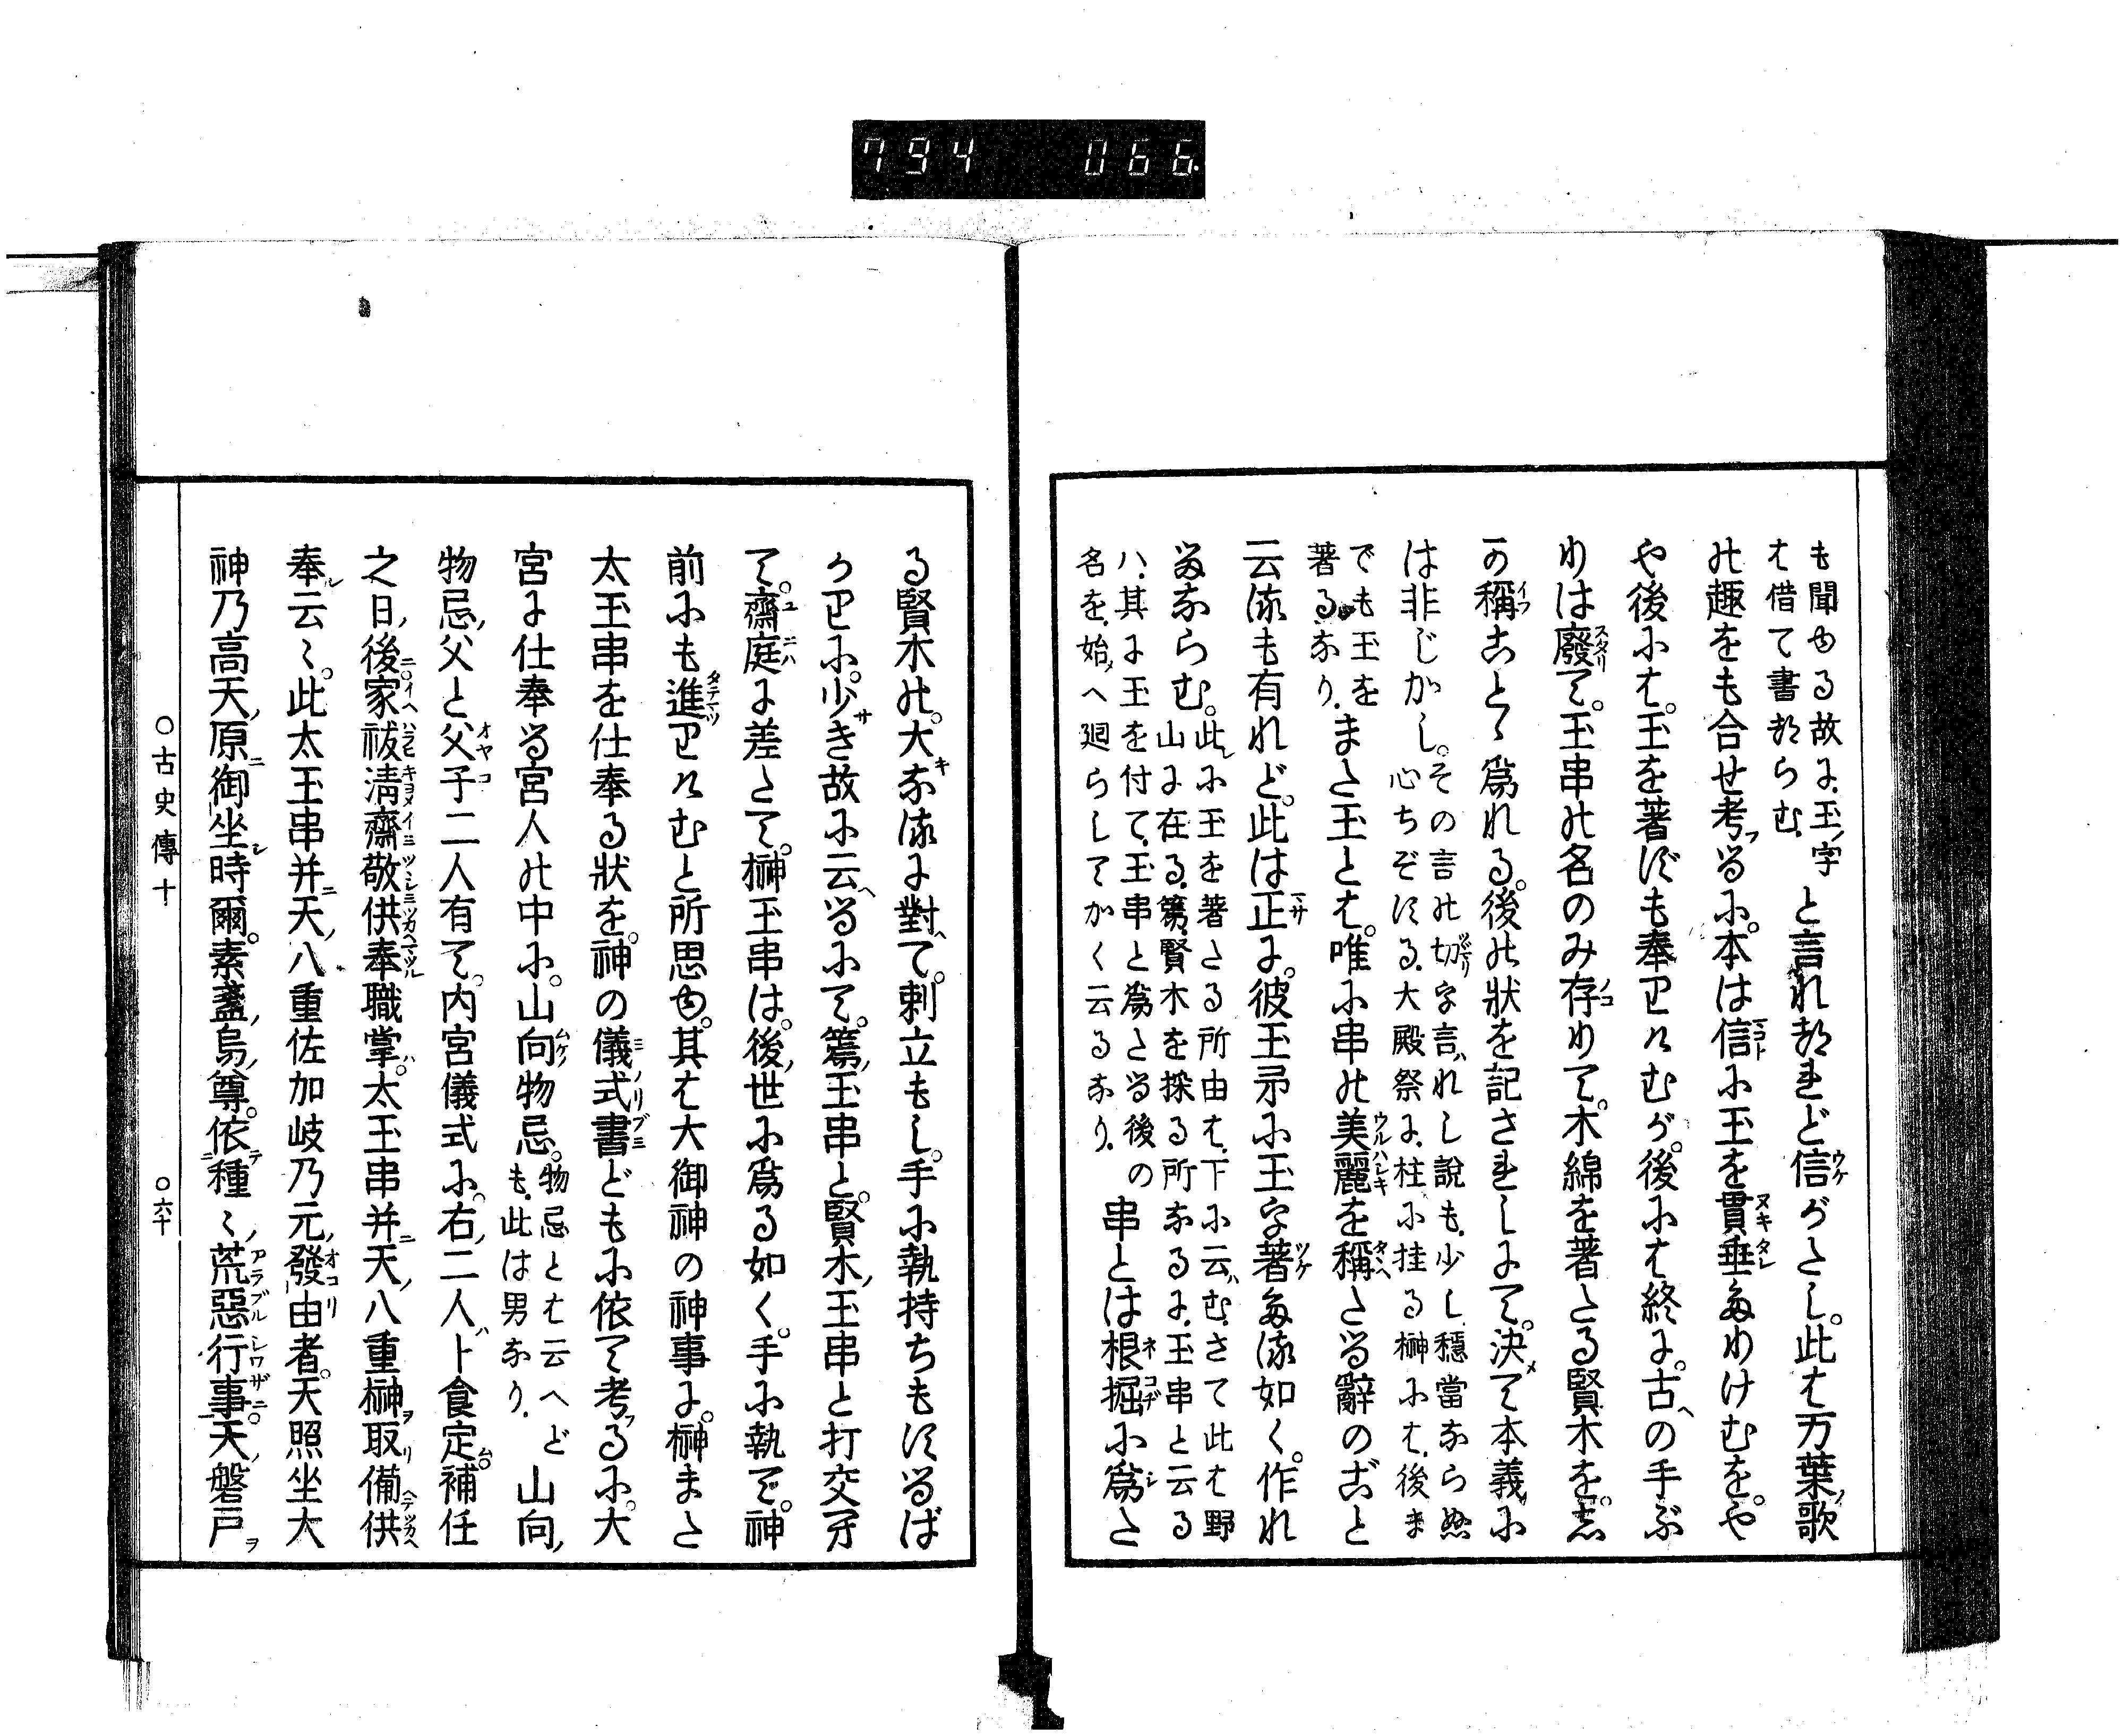 794 066
も聞ゆる故よ、玉ノ字
は借て書鄀らむ、
と言れ都れど信がたし。此は万葉ノ歌
の趣をも合せ考ふるに。本は信に玉を貫垂ためりけむを。や
や後には。玉を著ずも奉りけむが。後には終に。古への手ぶ
りは廢て。玉串の名のみ存りて。木綿を著たる賢木を。志
か稱ことゝ爲れる。後の狀を記されしにて。決て本義に
は非じかし。
その言の切字言れし説も、少し穩當ならぬ
心ちぞする、大殿祭に、柱に挂る榊には、後ま
でも玉を
著るなり、
また玉とは。唯に串の美麗を稱たる辭のごと
云るも有れど。此は正に。彼玉帛に玉字著たる如く。作れ
るならむ。
此に玉を著たる所由は、下に云む、さて此は野
山に在る、篶賢木を採る所なるに、玉串と云る
ハ、其に玉を付て、玉串と爲たる後の
名を、始へ廻らしてかく云るなり、
串とは根掘に爲た
る賢木の。大なるに對て。刺立もし。手に執持ちもするば
かりに。少き故に云へるにて。篶ノ玉串と。賢木ノ玉串と打交て
て。齋庭に差たて。榊玉串は。後ノ世に爲る如く。手に執て。神
前にも進りけむと所思ゆ。其は大御神の神事に。榊また
太玉串を仕奉る狀を。神の儀式書どもに依て考ふるに。大
宮に仕奉る宮人の中に。山向物忌。
物忌とは云へど
も、此は男なり、
山向ノ
物忌ノ父と父子二人有て。内宮儀式に。右ノ二人ト食定補任
之日。後家祓淸齋敬供奉職掌ハ。太玉串并天ノ八重榊取備供
奉云々。此太玉串并天ノ八重佐加岐乃元ノ發由者。天照坐大
神乃高天ノ原御坐時爾。素盞ノ烏ノ尊。依種々ノ荒惡行事。天ノ磐戸
○古史傳十 ○六十